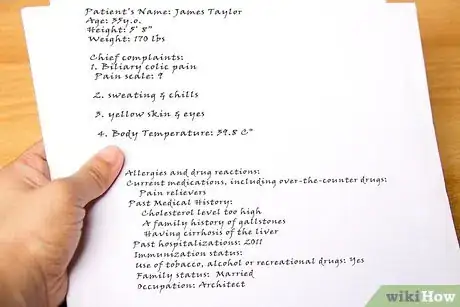 Patient's Name: James Taylor
Age: 35y.o.
Height: 5' 8"
Weight: 170 lbs
Chief complaints:
1. Biliary colic pain
Pain scale: 9
2. sweating & chills
3. yellow skin & eyes
4. Body Temperature: 39.8 C°
Allergies and drug reactions:
Current medications, including over-the-counter drugs:
Pain relievers
Past Medical History:
Cholesterol level too high
A family history of gallstones
Having cirrhosis of the liver
Past hospitalizations: 2011
Immunization status:
Use of tobacco, alcohol or recreational drugs: Yes
Family status: Married
Occupation: Architect
wikiHow